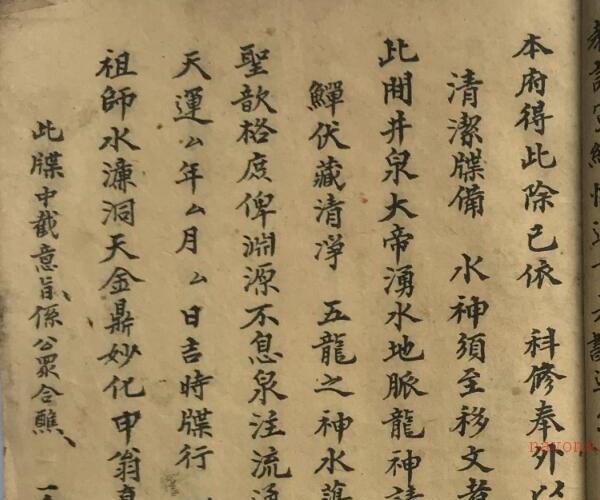 本府得此除已依　科修奉外
清潔牒備　水神須至移文者
此閒井泉大帝湧水地脉龍神請
鱓伏藏清淨　五龍之神水蕩
聖歆格庻俾淵源不息泉注流通
天運厶年厶月厶日吉時牒行
祖師水濂洞天金鼎妙化申翁真
此牒中截意旨係公眾合醮、